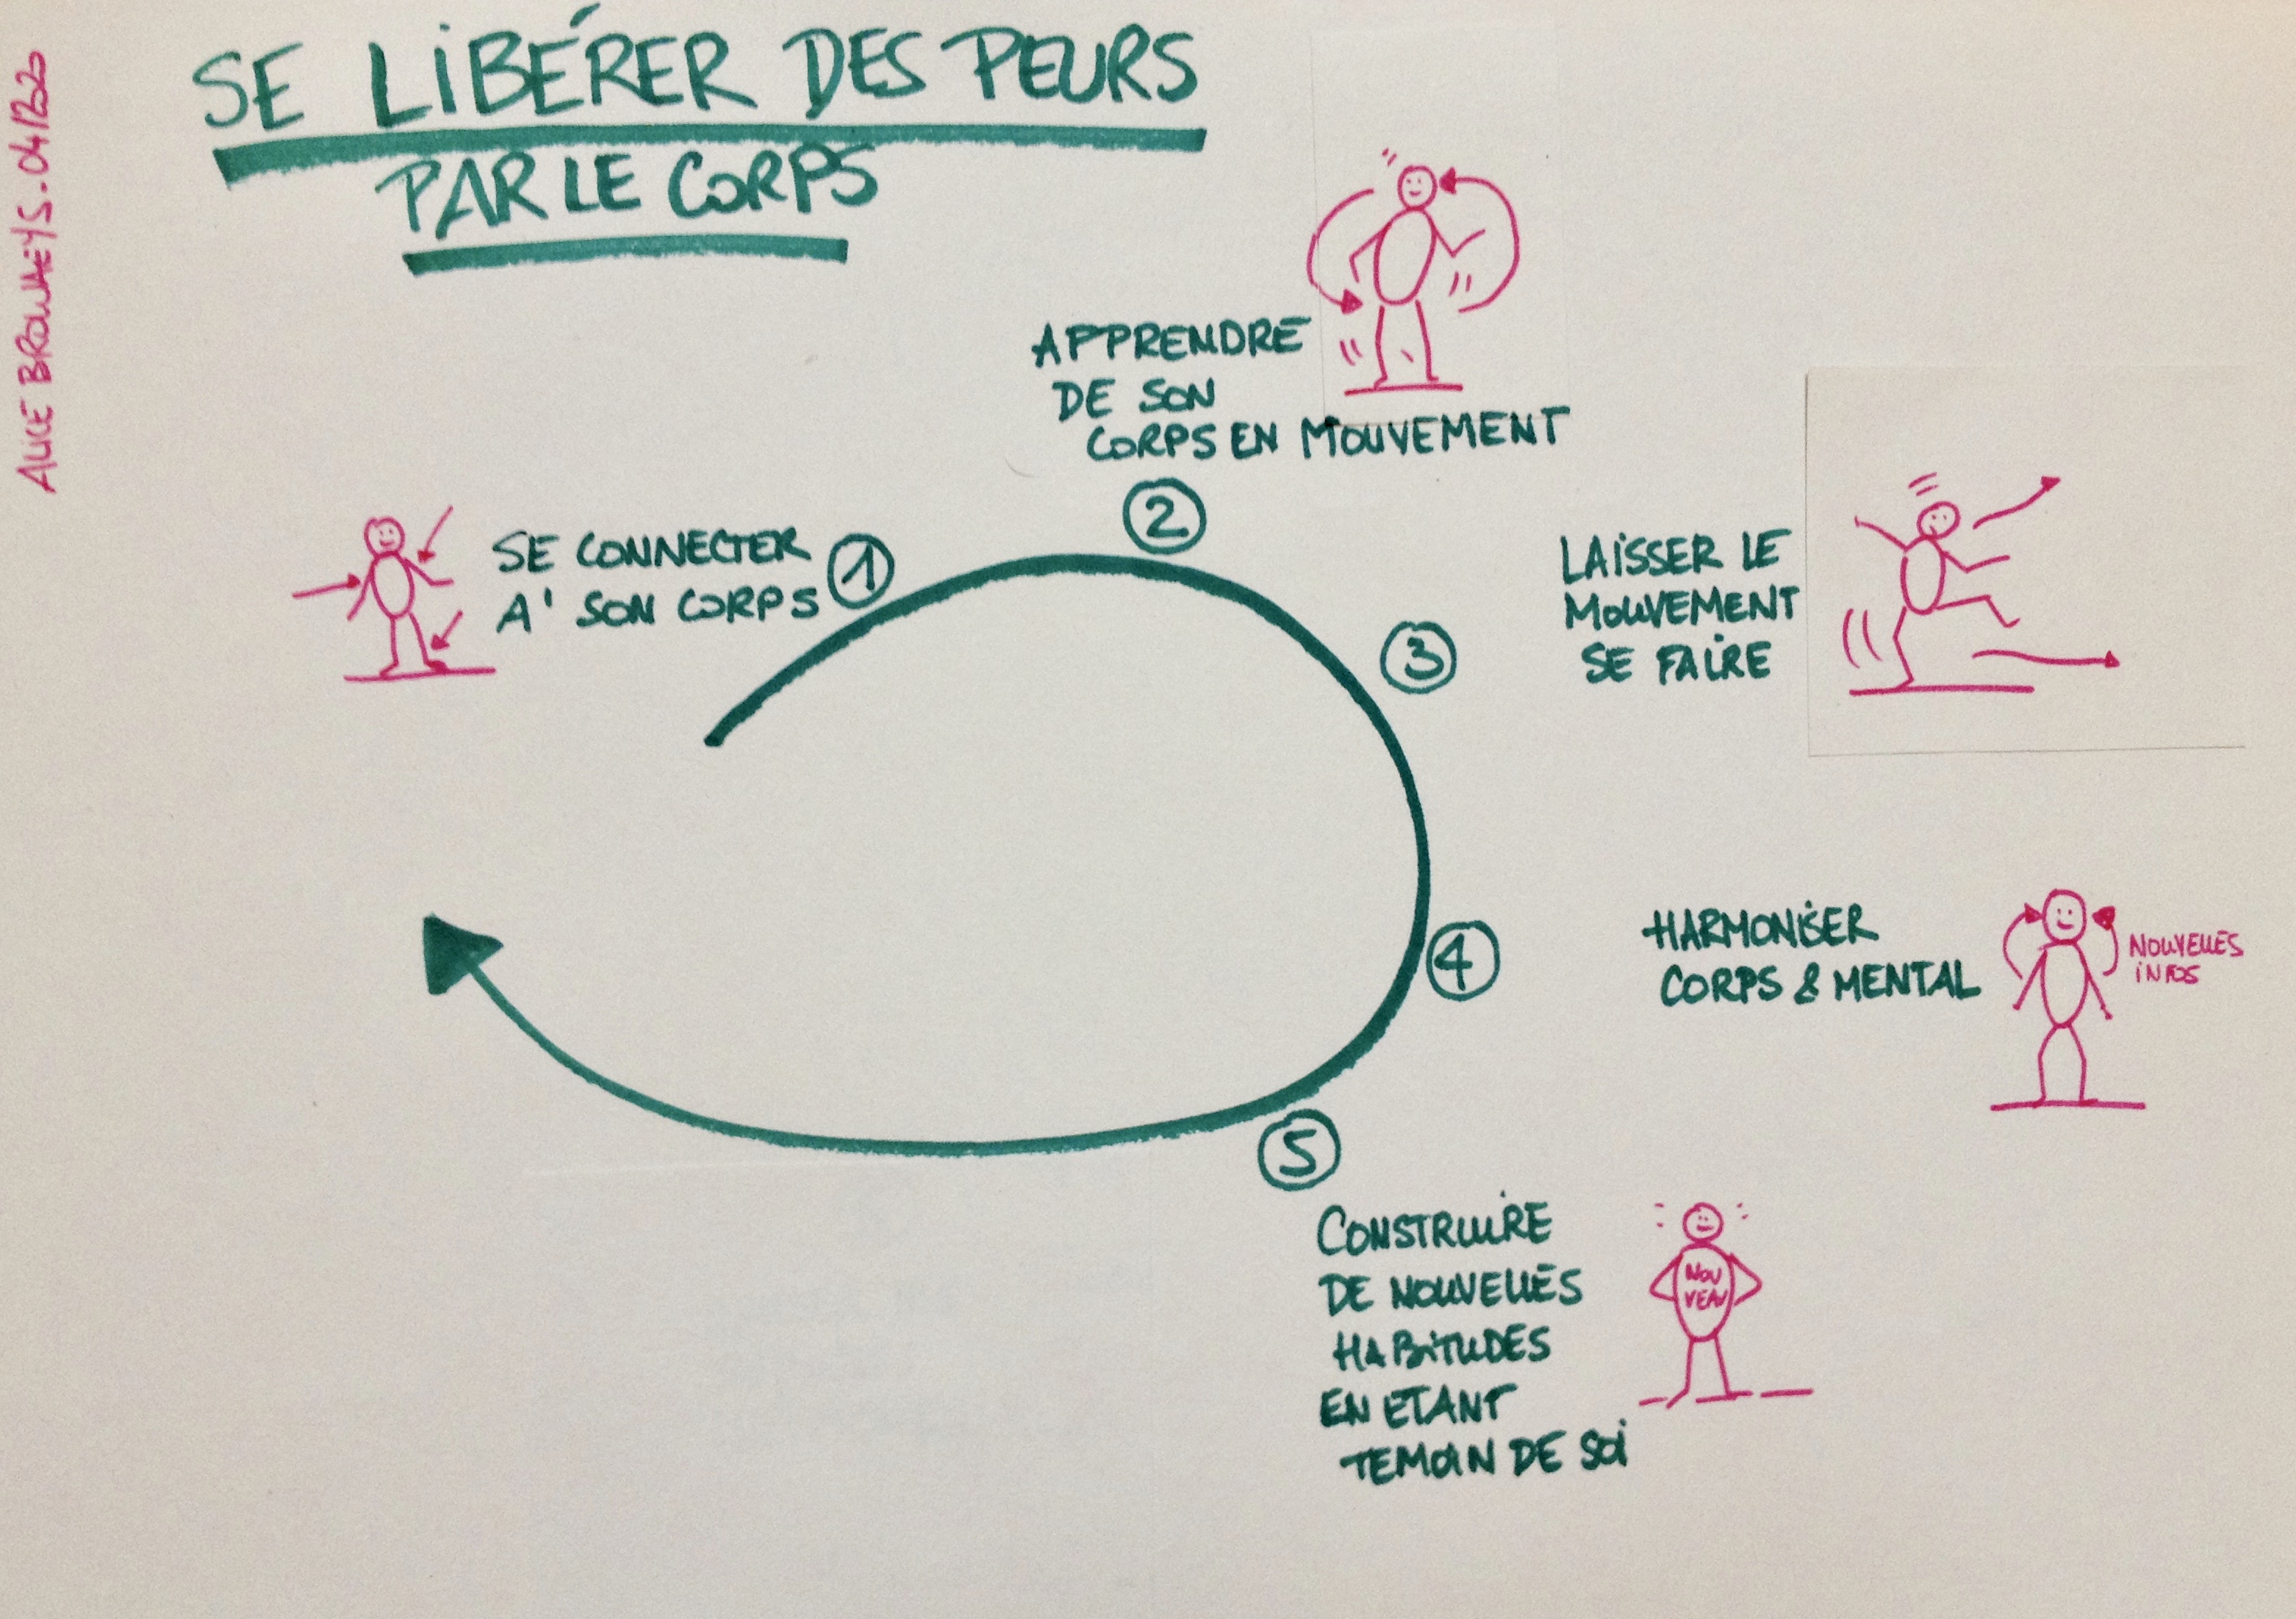 SE LIBÉRER DES PEURS
PAR LE CORPS
ALICE BROUAEYS. 04/2020
1
SE CONNECTER
A' SON CORPS
2
APPRENDRE
DE SON
CORPS EN MOUVEMENT
3
LAISSER LE
MOUVEMENT
SE FAIRE
4
HARMONISER
CORPS & MENTAL
NOUVELLES
INFOS
5
CONSTRUIRE
DE NOUVELLES
HABITUDES
EN ETANT
TEMOIN DE SOI
NOU
VEAU